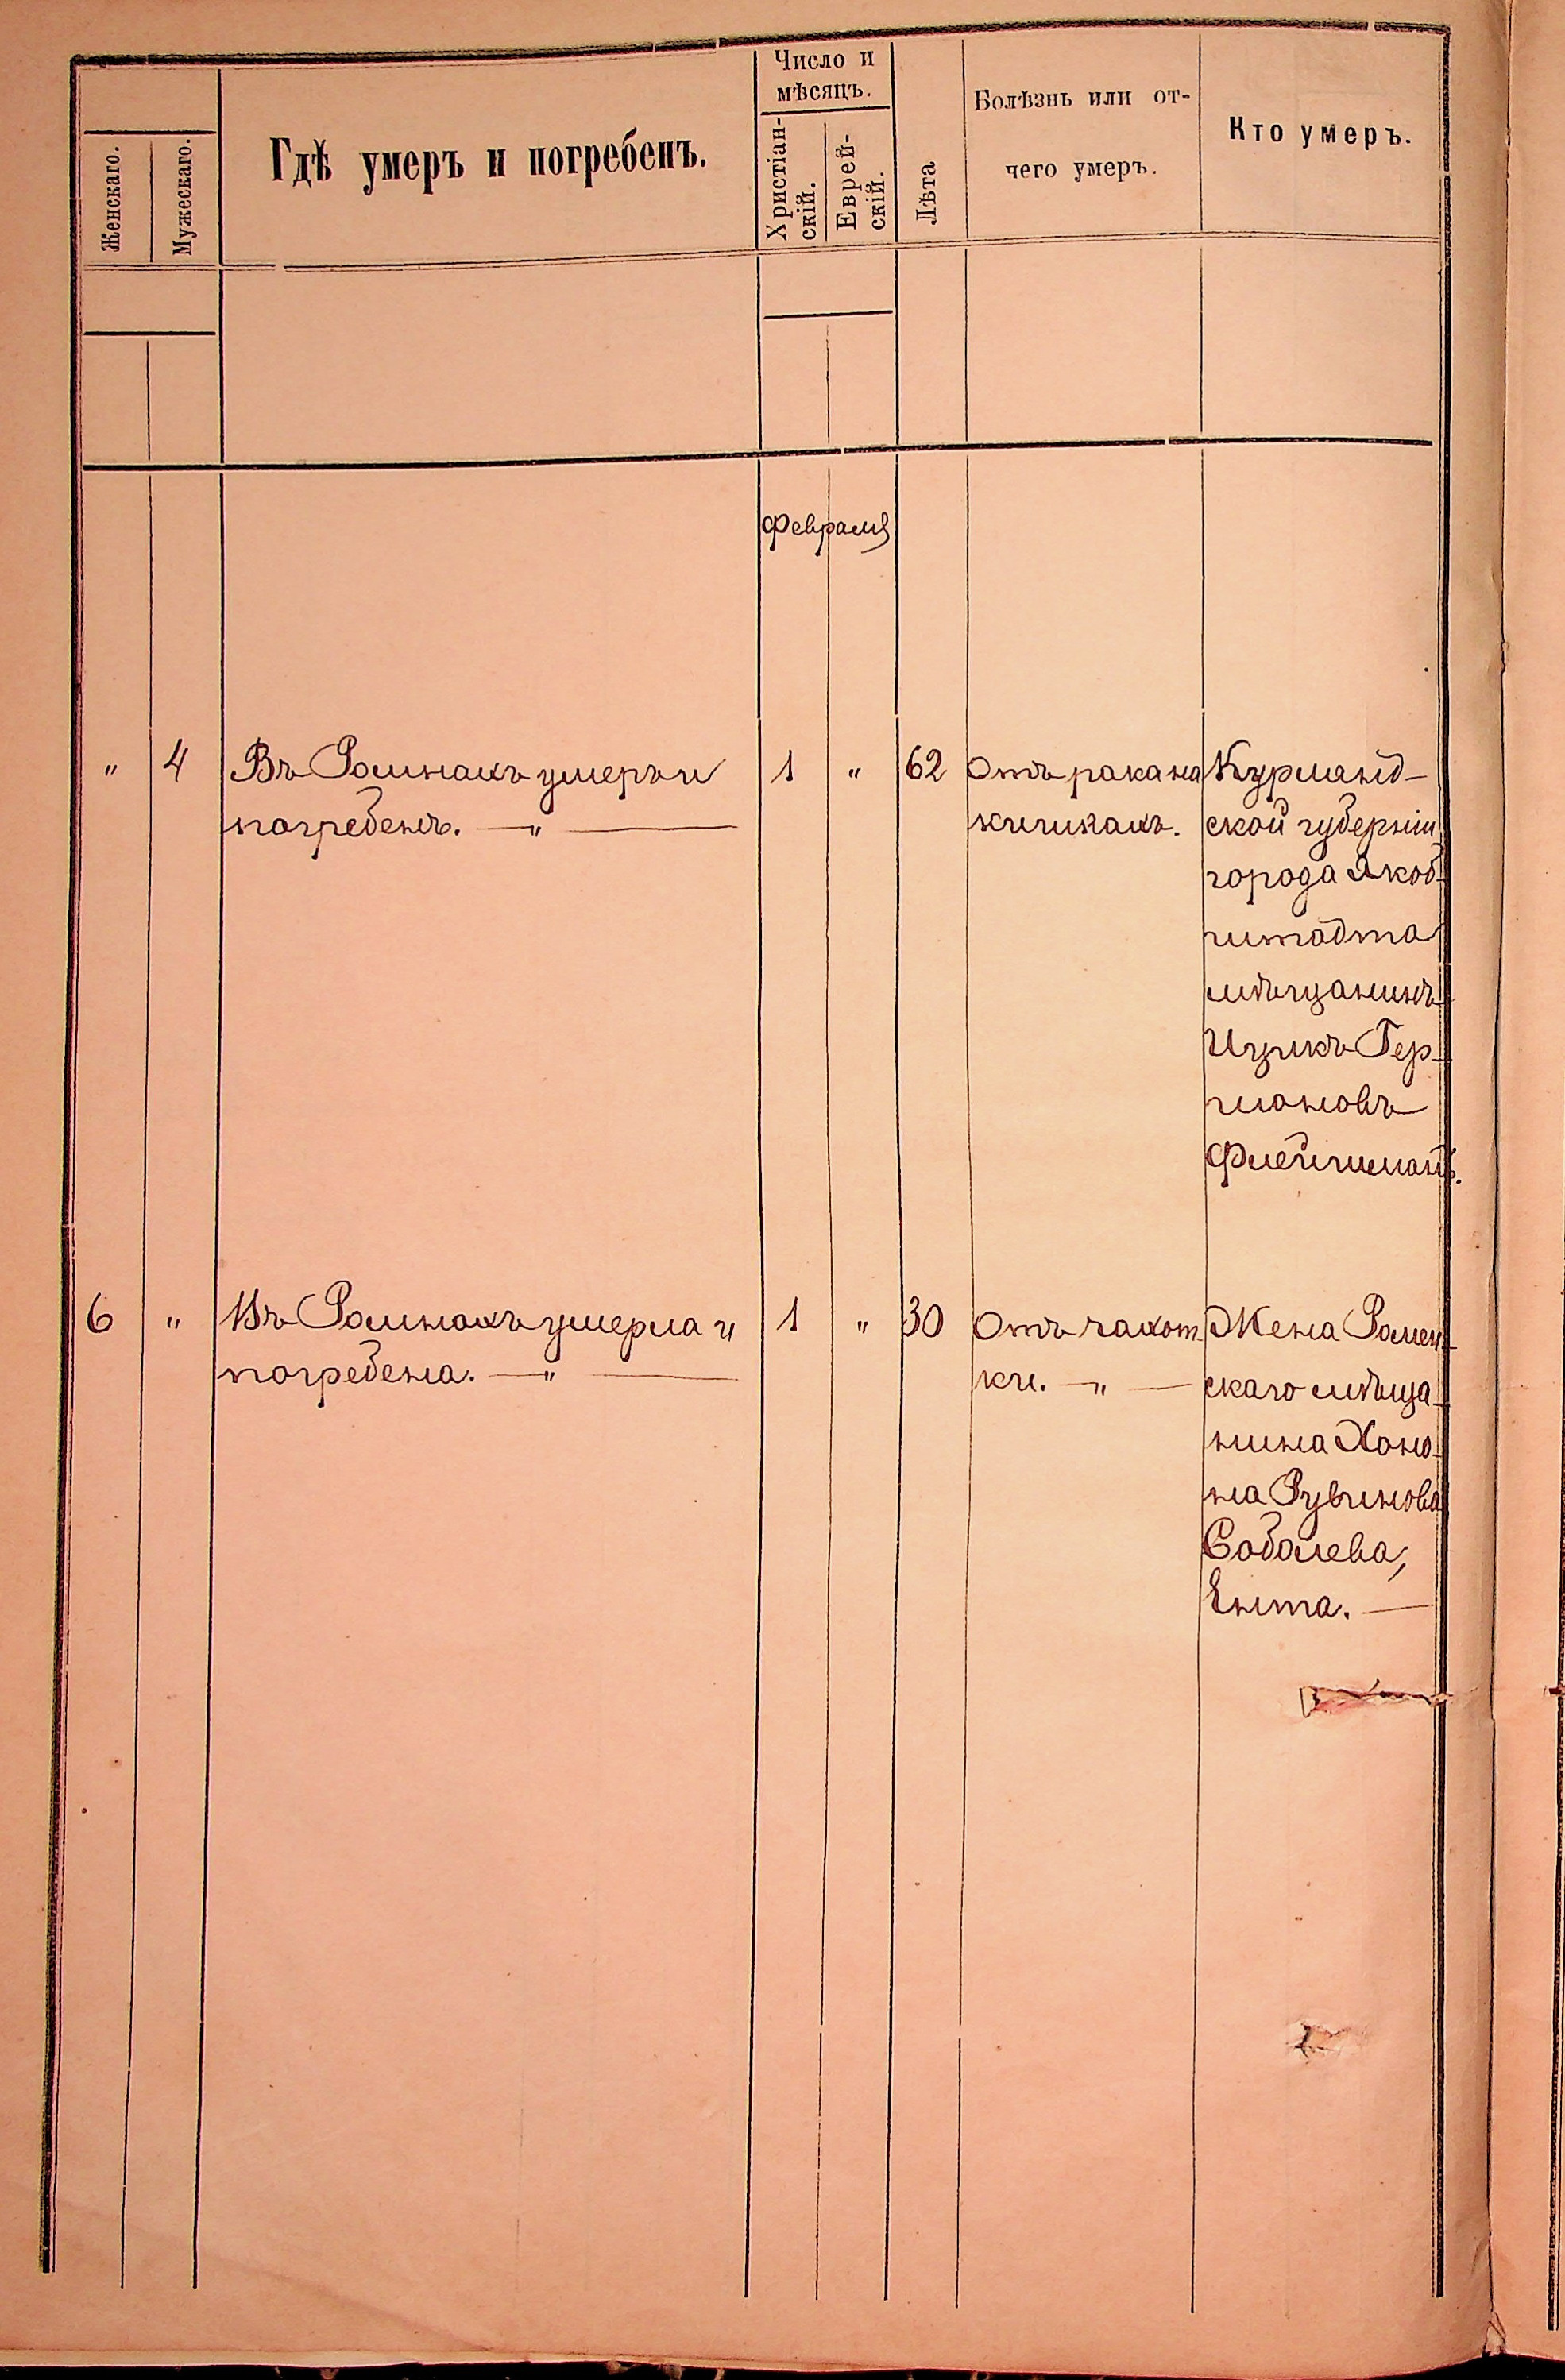 Женскаго.
Мужескаго.
Гдѣ умеръ и погребенъ.
Число и
мѣсяцъ.
Христіан-
скій.
Еврей-
скій.
Лѣта
Болѣзнь или от-
чего умеръ.
Кто умеръ.
Февраля
„ 4 Въ Ромнахъ умеръ и
погребенъ. — „ —
1 „ 62
Отъ рака на
кишкахъ.
Курлянд-
ской губерніи
города Якоб-
штадта
мѣщанинъ
Ицикъ Гер-
шоновъ
Флейшманъ.
6 „ Въ Ромнахъ умерла и
погребена. — „ —
1 „ 30
Отъ чахот-
ки. — „ —
Жена Ромен-
скаго мѣща-
нина Хоно-
на Рувинова
Соболева,
Ента. —